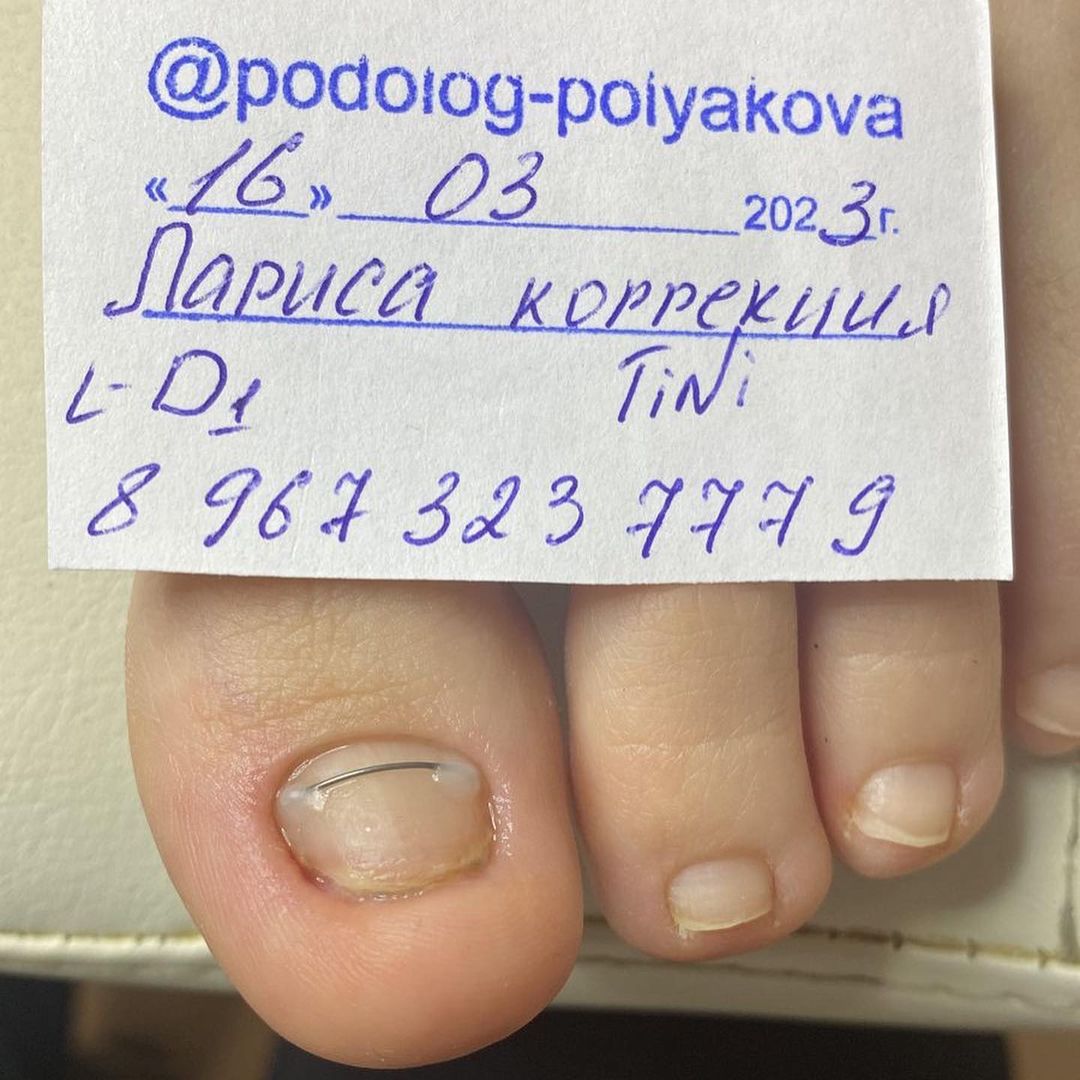 @podolog-polyakova
«16» 03 2023г.
Лариса коррекция
L-D1 TiNi
8 967 323 777 9